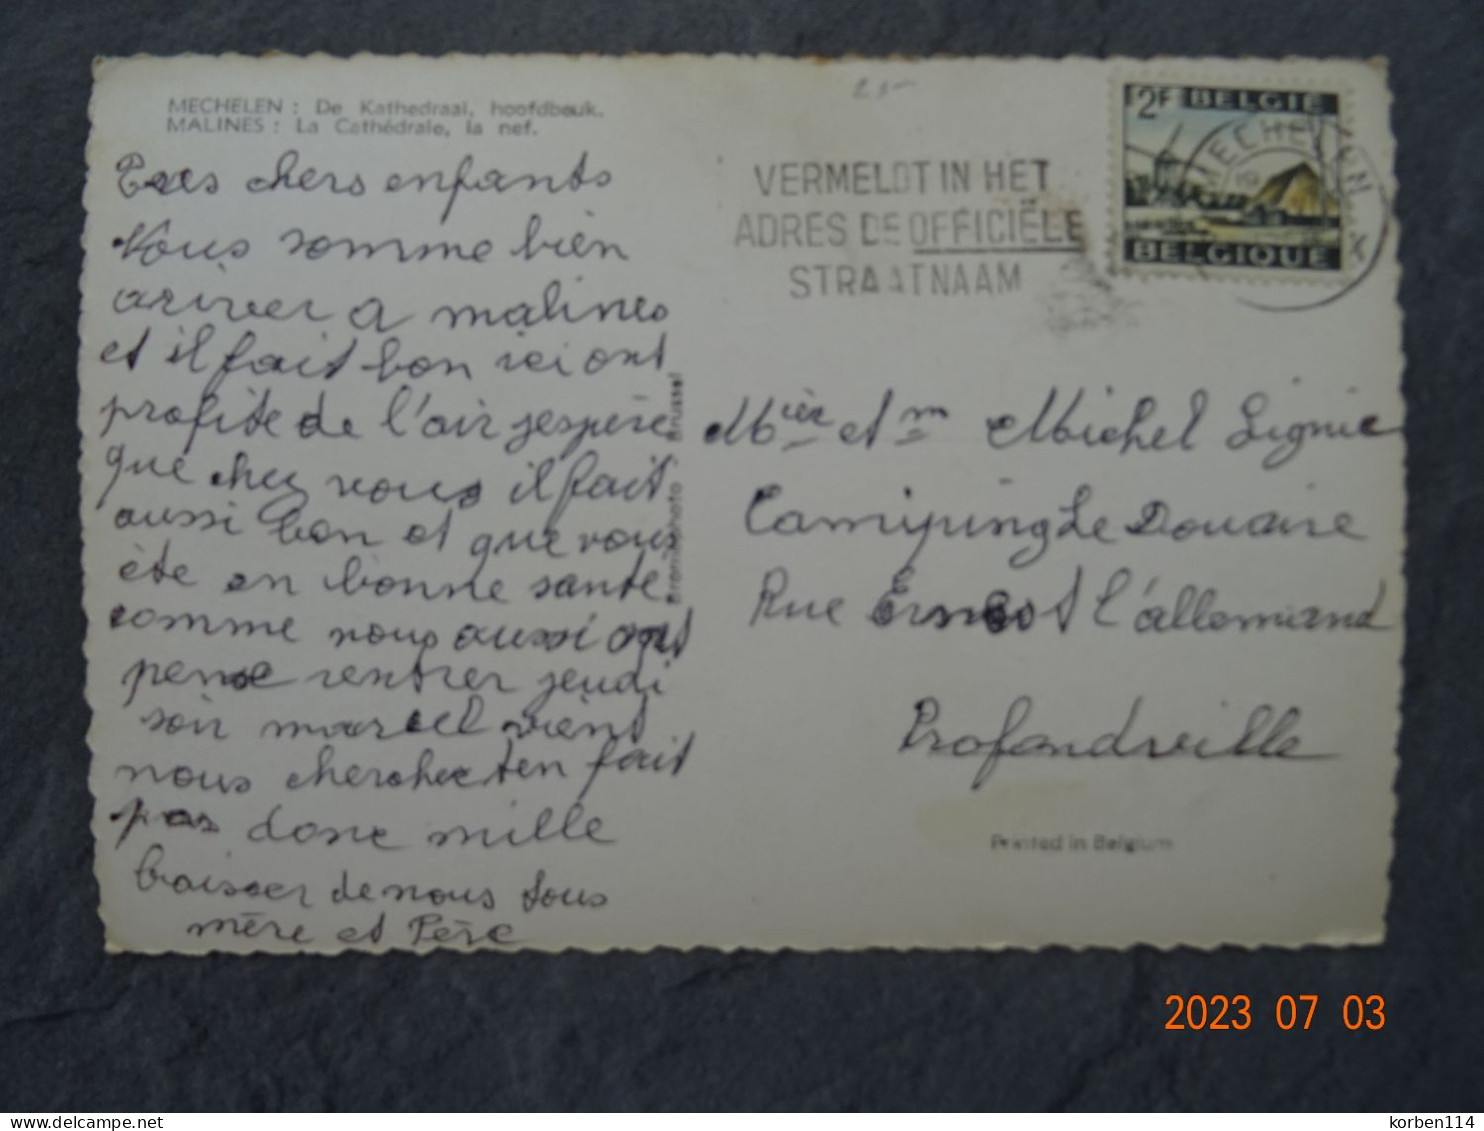 MECHELEN : De Kathedraal, hoofdbeuk.
MALINES : La Cathédrale, la nef.
Tres chers enfants
Nous somme bien
ariver a malines
et il fait bon ici ont
profite de l'air jespère
que chez vous il fait
aussi bon et que vous
ète en bonne santé
comme nous aussi ont
pense rentrer jeudi
soir marcel vient
nous cherchez ten fait
pas donc mille
baisser de nous tous
mère et Père
Bromurphoto Brussel
25-
VERMELDT IN HET
ADRES DE OFFICIËLE
STRAATNAAM
2F BELGIE
BELGIQUE
MECHELEN
Mr et Mme Michel Lignie
Camiping Le Douaire
Rue Ernest l'allemand
Profandville
Printed in Belgium
2023 07 03
korben114